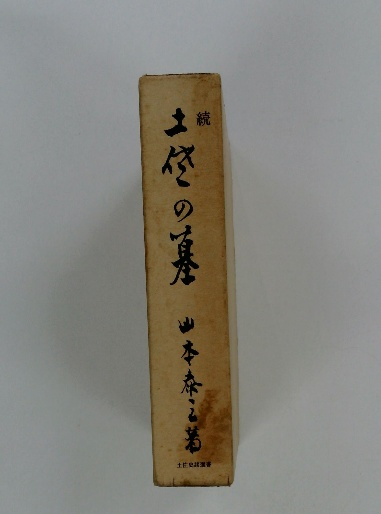 続
土佐の墓
山本泰三著
土佐史談選書